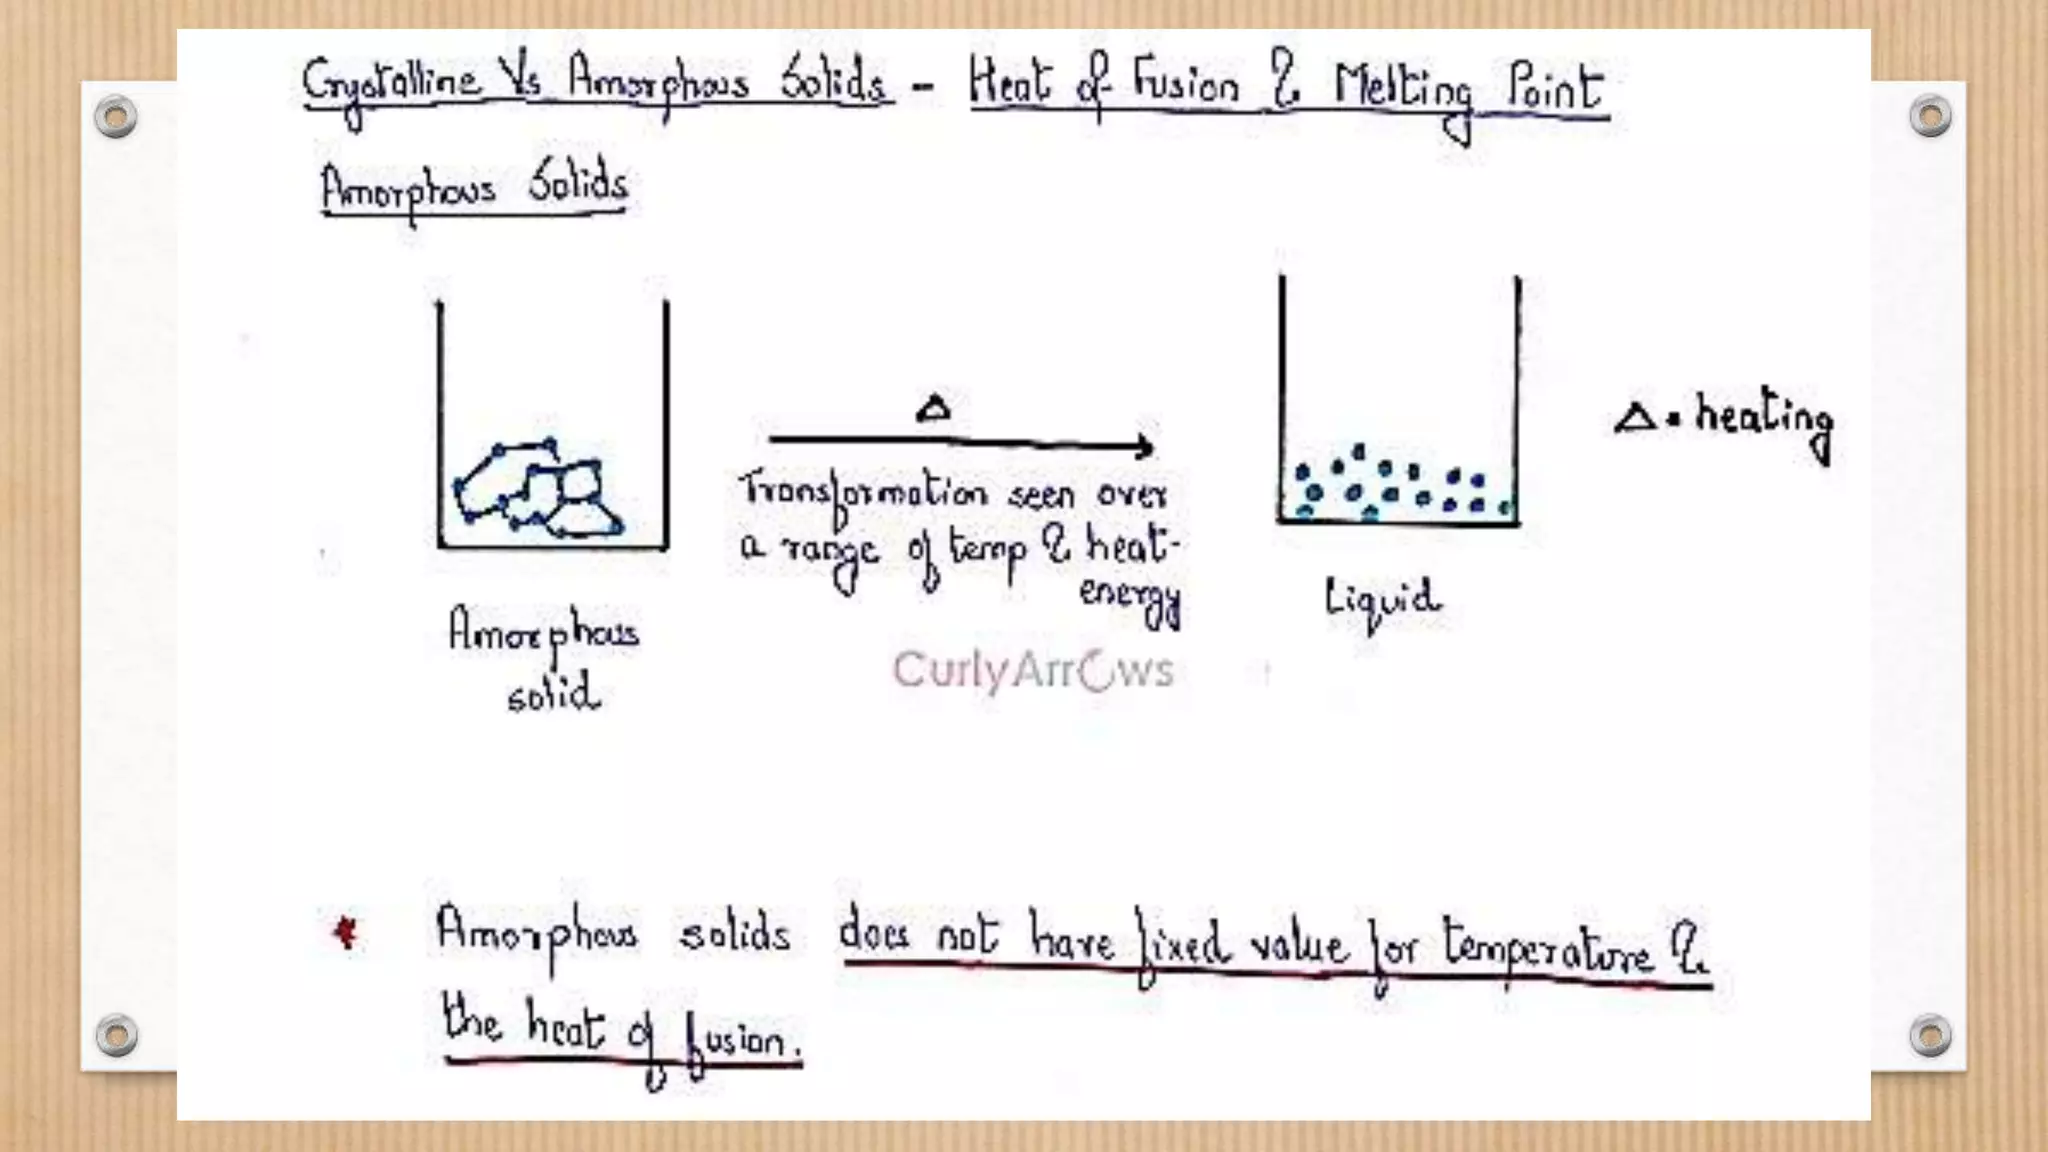 Crystalline Vs Amorphous Solids - Heat of Fusion & Melting Point
Amorphous Solids
Δ
Δ = heating
Transformation seen over
a range of temp & heat-
energy
Amorphous
solid
Liquid
CurlyArrows
* Amorphous solids does not have fixed value for temperature &
the heat of fusion.